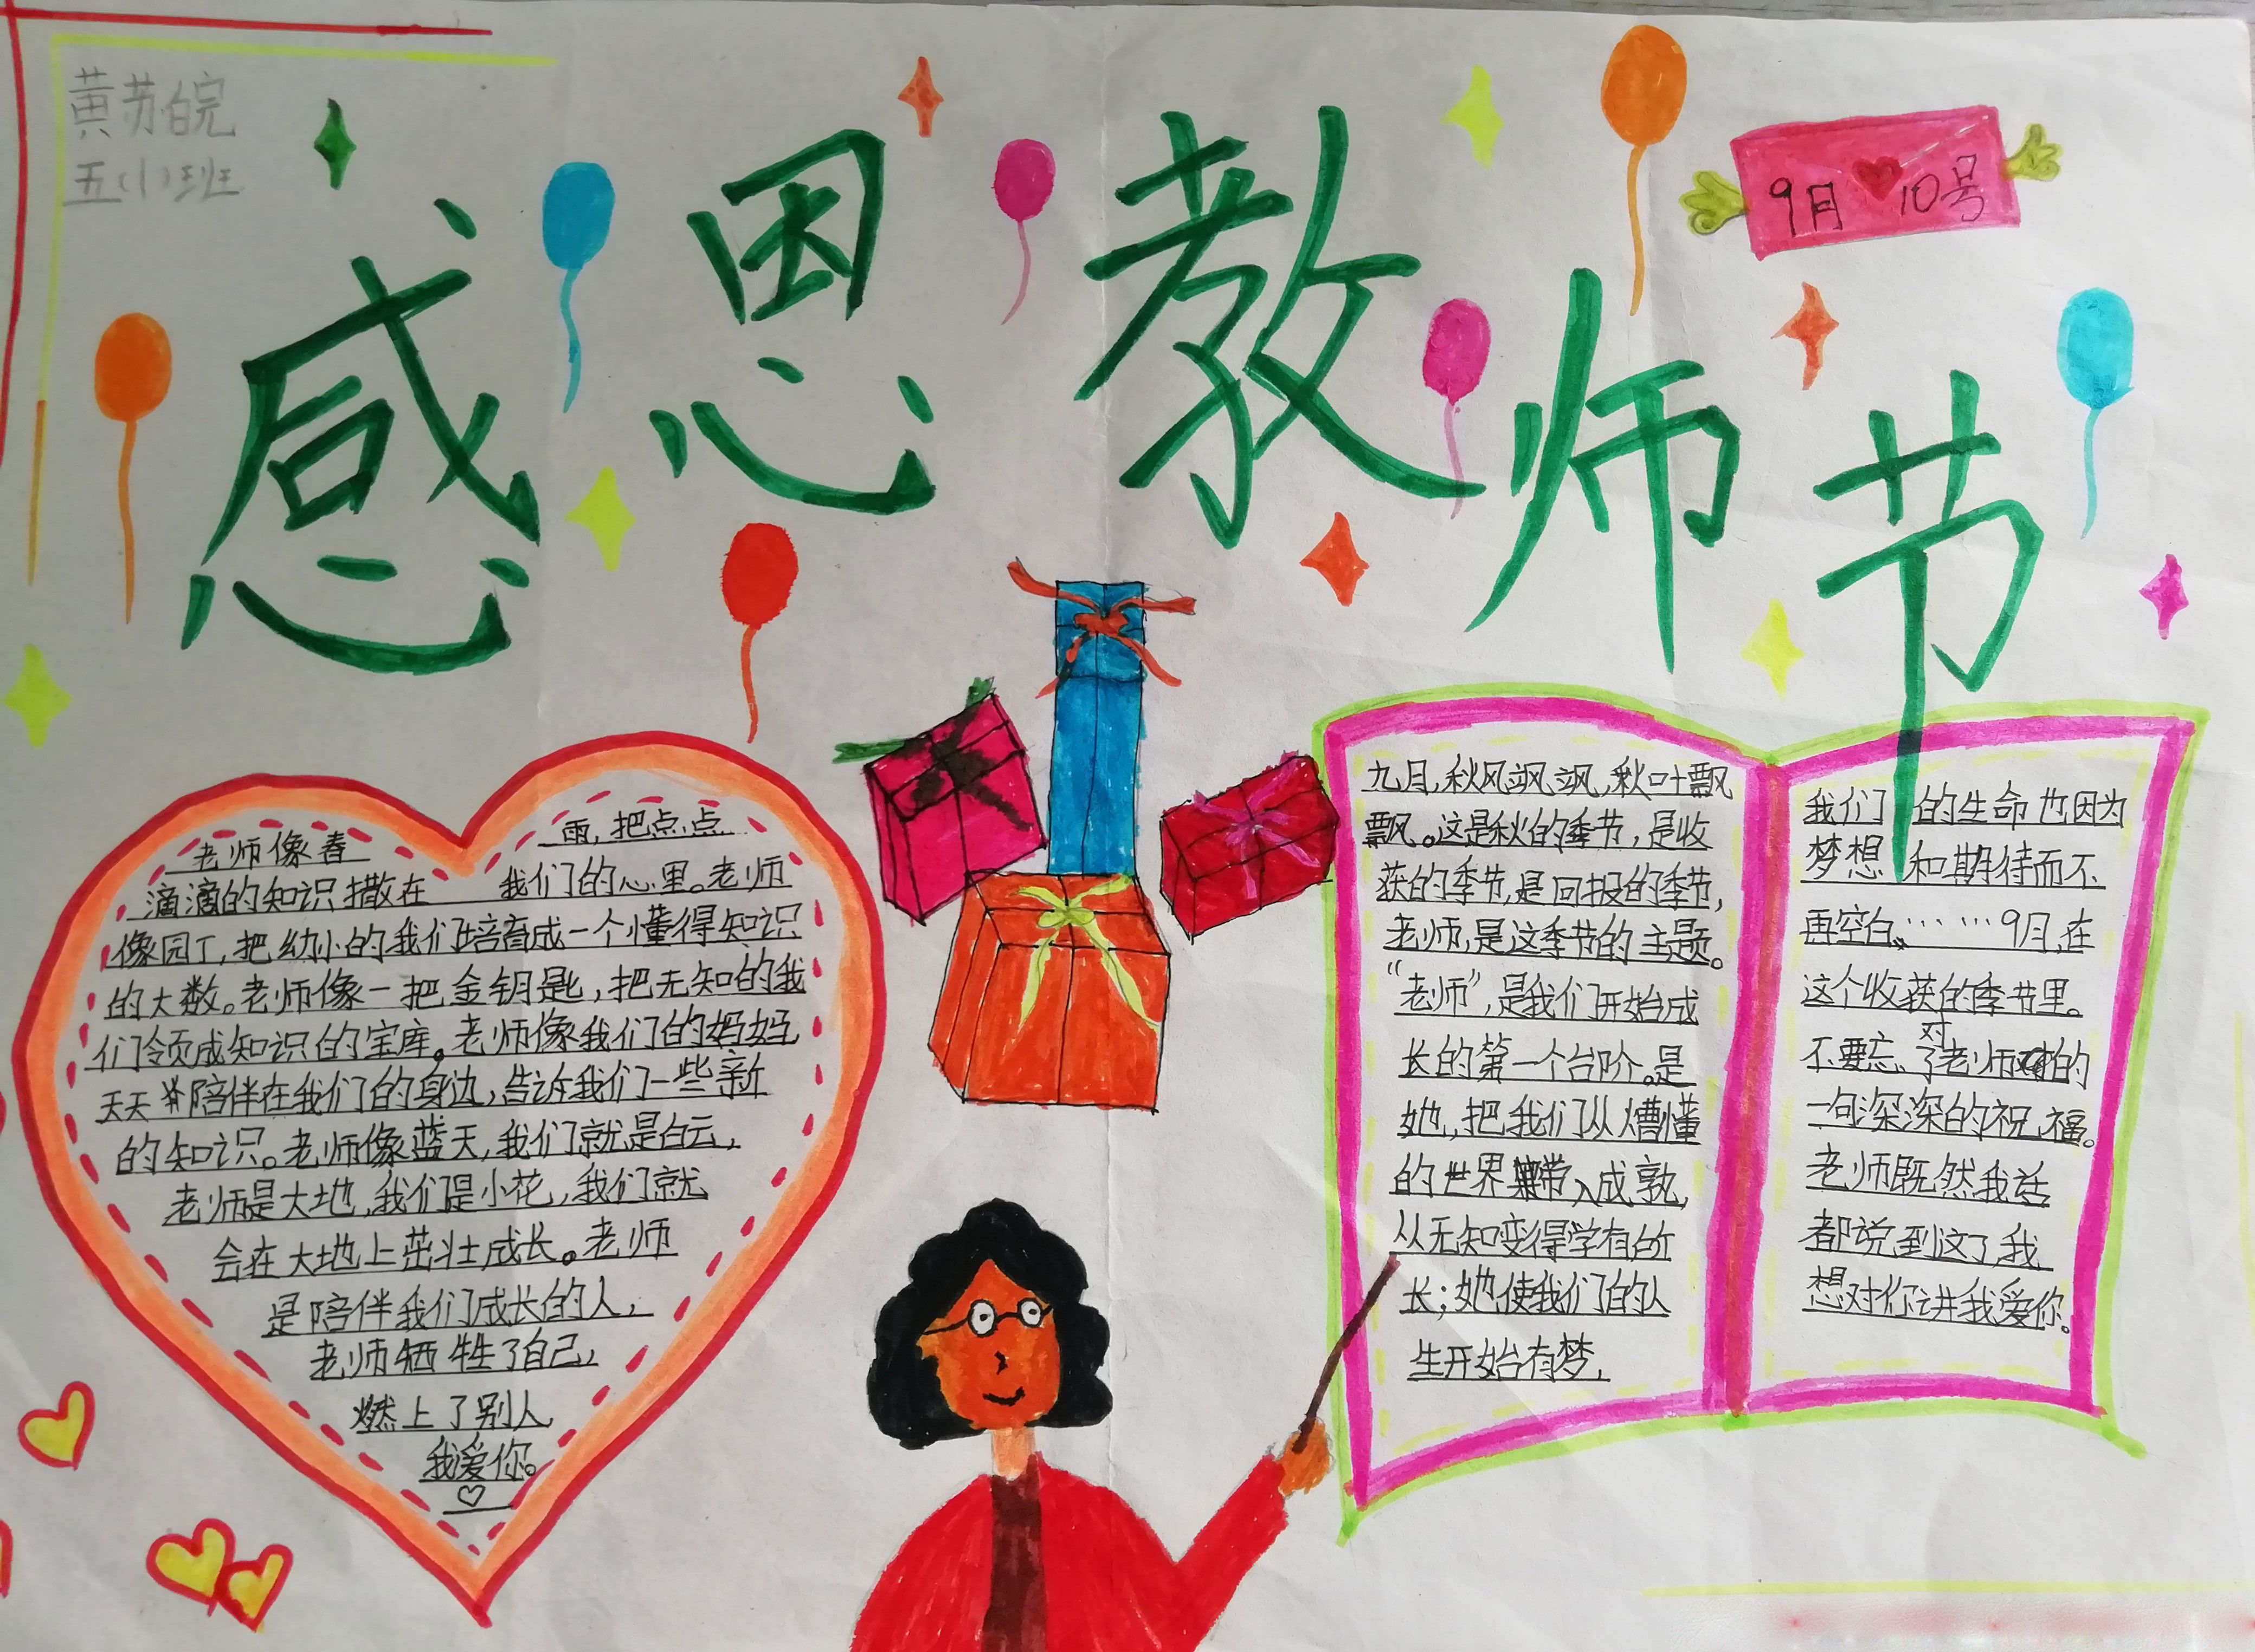 黄苏皖
五(1)班
感恩教师节
9月10号
老师像春
雨,把点点
滴滴的知识撒在
我们的心里。老师
像园丁,把幼小的我们培育成一个懂得知识
的大数。老师像一把金钥匙,把无知的我
们领成知识的宝库。老师像我们的妈妈,
天天陪伴在我们的身边,告诉我们一些新
的知识。老师像蓝天,我们就是白云,
老师是大地,我们是小花,我们就
会在大地上茁壮成长。老师
是陪伴我们成长的人,
老师牺牲了自己,
燃上了别人
我爱你。
九月,秋风飒飒,秋叶飘
飘。这是秋的季节,是收
获的季节,是回报的季节,
老师,是这季节的主题。
“老师”,是我们开始成
长的第一个台阶。是
她,把我们从懵懂
的世界带入成孰,
从无知变得学有所
长;她使我们的人
生开始有梦,
我们的生命也因为
梦想和期待而不
再空白……9月,在
这个收获的季节里。
不要忘了对老师的
一句深深的祝福。
老师既然我话
都说到这了我
想对你讲我爱你。